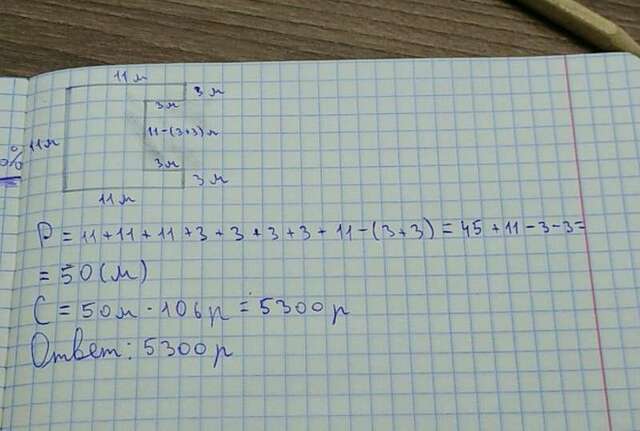 11м
3м
3м
11м
11-(3+3)м
%
3м
3м
11м
P = 11+11+11+3+3+3+3+11-(3+3) = 45+11-3-3=
= 50(м)
C = 50м · 106р = 5300р
Ответ: 5300р